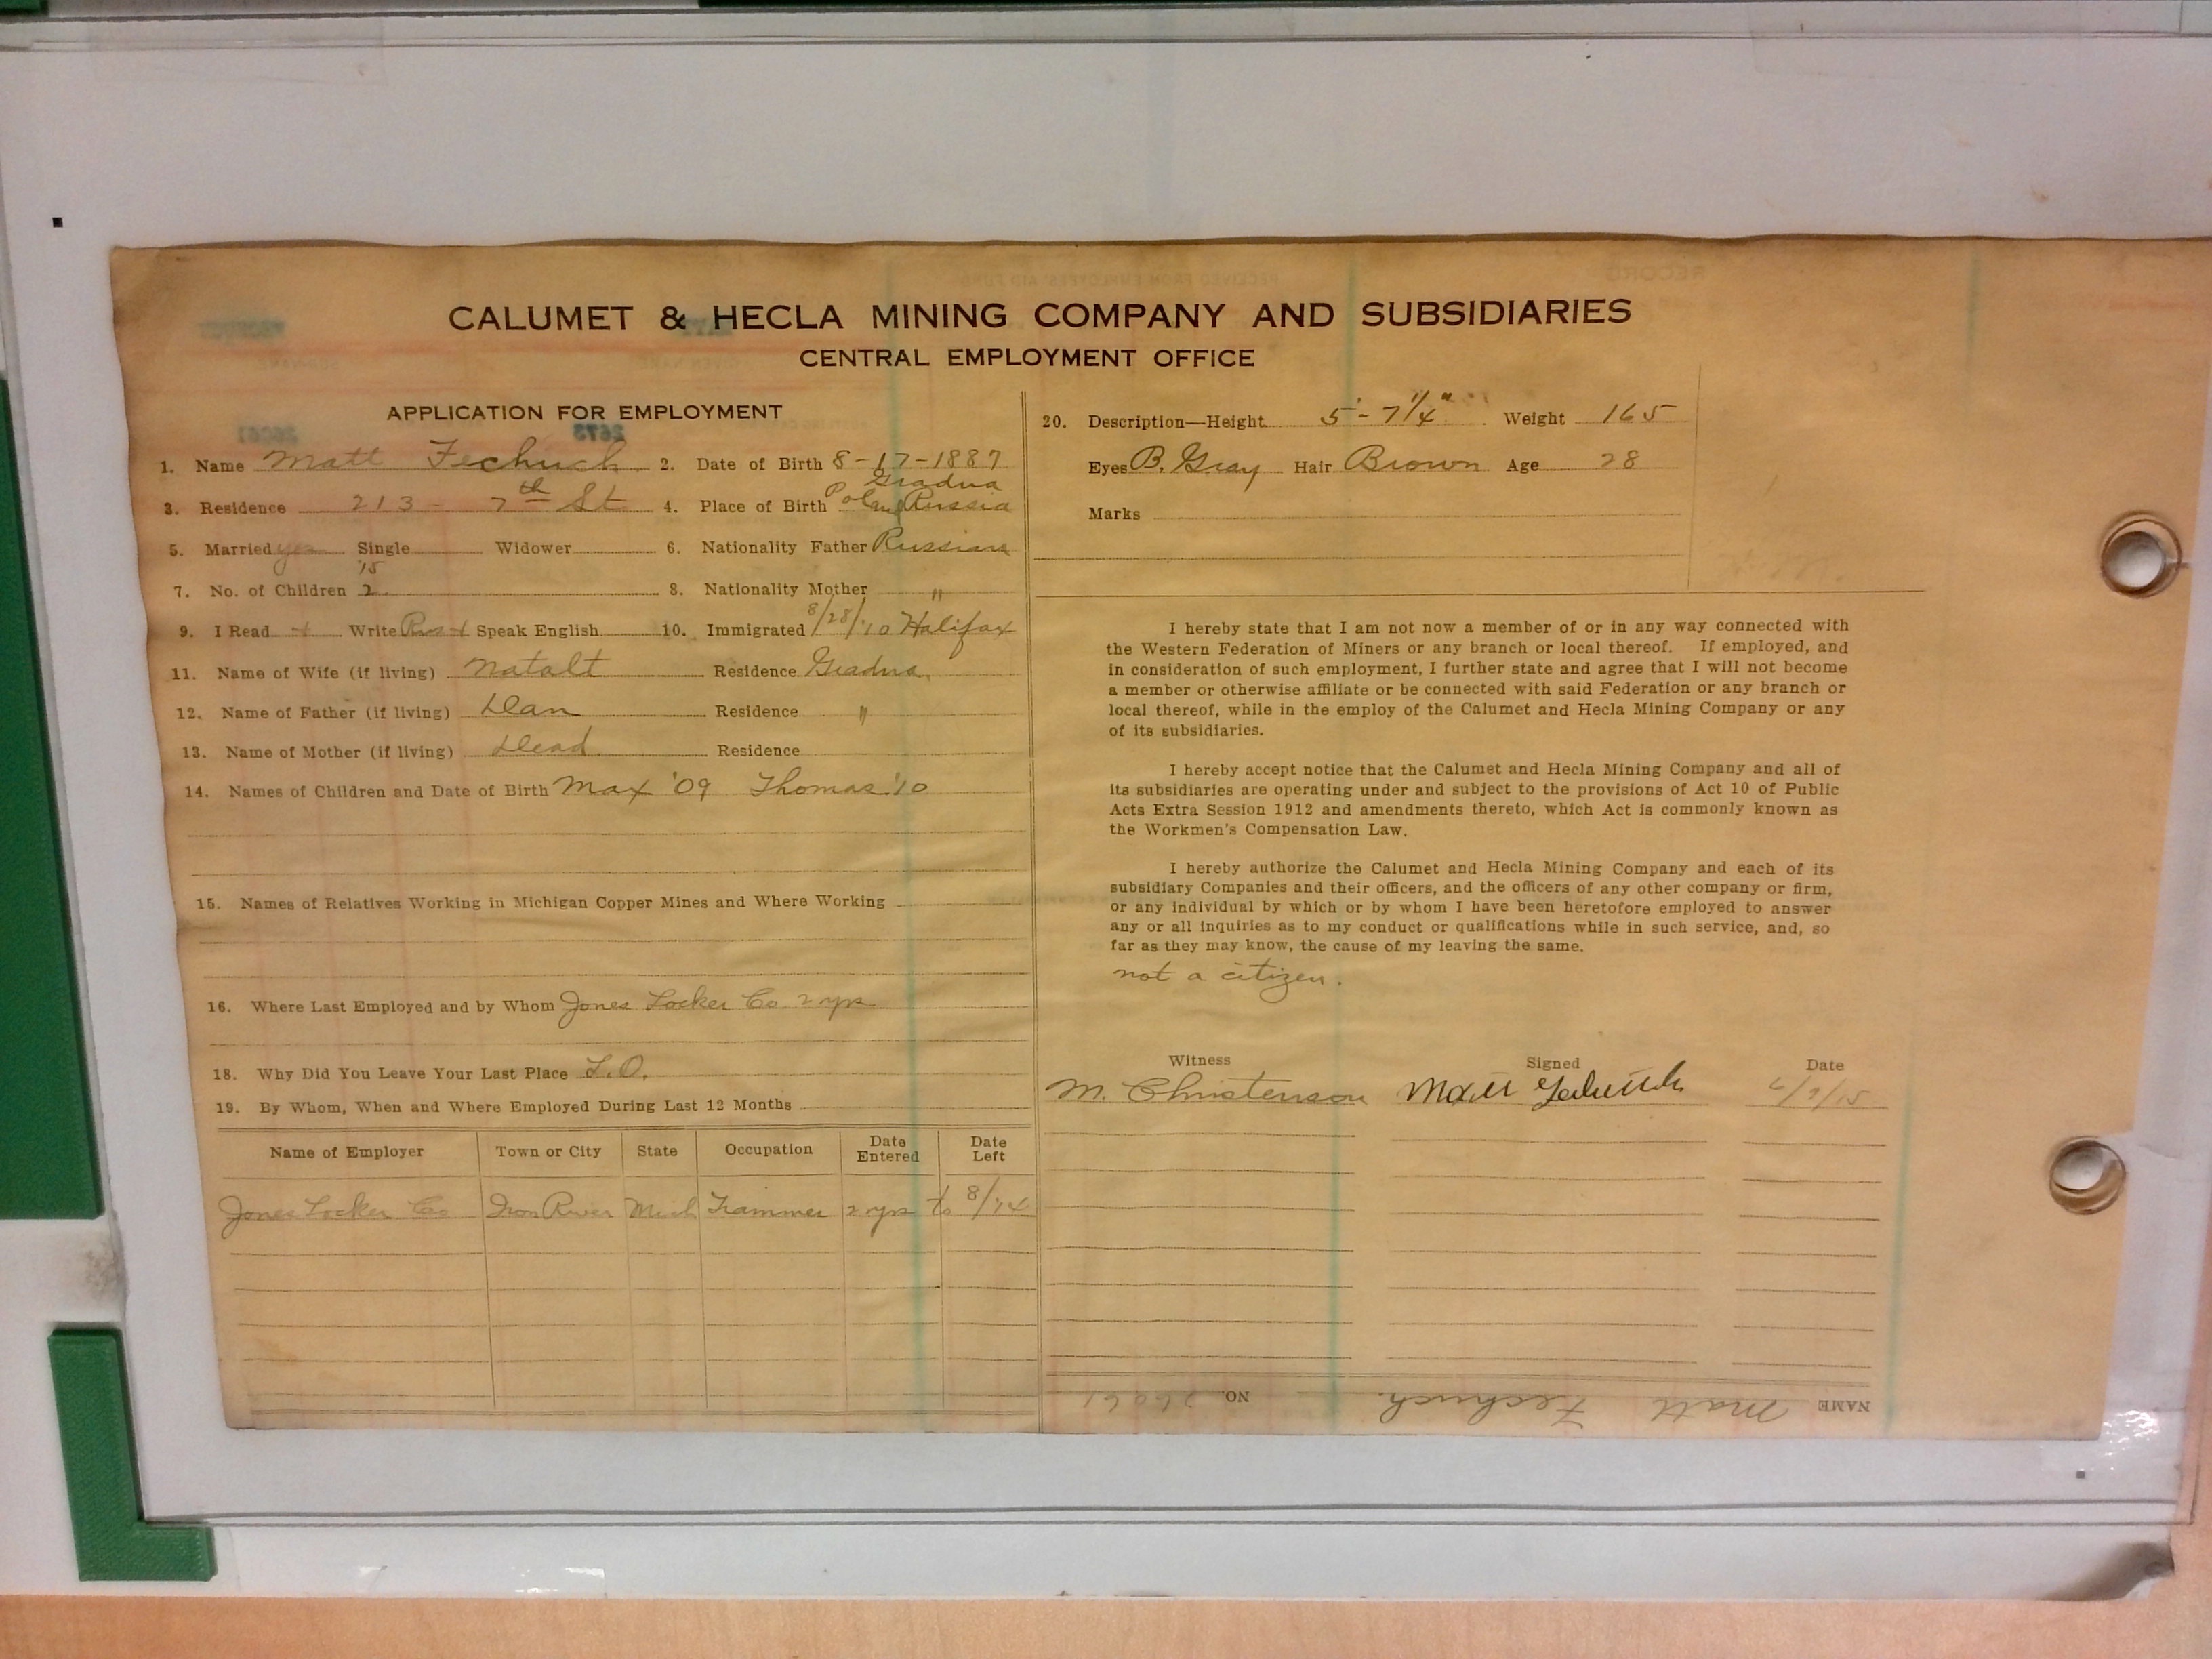 CALUMET & HECLA MINING COMPANY AND SUBSIDIARIES
CENTRAL EMPLOYMENT OFFICE
APPLICATION FOR EMPLOYMENT
1. Name Matt Fechuch 2. Date of Birth 8-17-1887
Gradna
3. Residence 213 - 7th St. 4. Place of Birth Poland Russia
5. Married yes Single Widower 6. Nationality Father Russian
'15
7. No. of Children 2 8. Nationality Mother "
9. I Read Write Speak English 10. Immigrated 8/28/'10 Halifax
11. Name of Wife (if living) Natalt Residence Gradna
12. Name of Father (if living) Dan Residence "
13. Name of Mother (if living) Dead Residence
14. Names of Children and Date of Birth Max '09 Thomas '10
15. Names of Relatives Working in Michigan Copper Mines and Where Working
16. Where Last Employed and by Whom Jones Locker Co 2 yrs
18. Why Did You Leave Your Last Place L.O.
19. By Whom, When and Where Employed During Last 12 Months
Name of Employer Town or City State Occupation Date Entered Date Left
Jones Locker Co Iron River Mich Trammer 2 yrs to 8/'14
20. Description—Height 5'-7 1/4" Weight 165
Eyes B. Gray Hair Brown Age 28
Marks
I hereby state that I am not now a member of or in any way connected with
the Western Federation of Miners or any branch or local thereof. If employed, and
in consideration of such employment, I further state and agree that I will not become
a member or otherwise affiliate or be connected with said Federation or any branch or
local thereof, while in the employ of the Calumet and Hecla Mining Company or any
of its subsidiaries.
I hereby accept notice that the Calumet and Hecla Mining Company and all of
its subsidiaries are operating under and subject to the provisions of Act 10 of Public
Acts Extra Session 1912 and amendments thereto, which Act is commonly known as
the Workmen's Compensation Law.
I hereby authorize the Calumet and Hecla Mining Company and each of its
subsidiary Companies and their officers, and the officers of any other company or firm,
or any individual by which or by whom I have been heretofore employed to answer
any or all inquiries as to my conduct or qualifications while in such service, and, so
far as they may know, the cause of my leaving the same.
not a citizen.
Witness Signed Date
M. Christenson Matt 6/9/15
NAME Matt Fechuch. NO. 26061